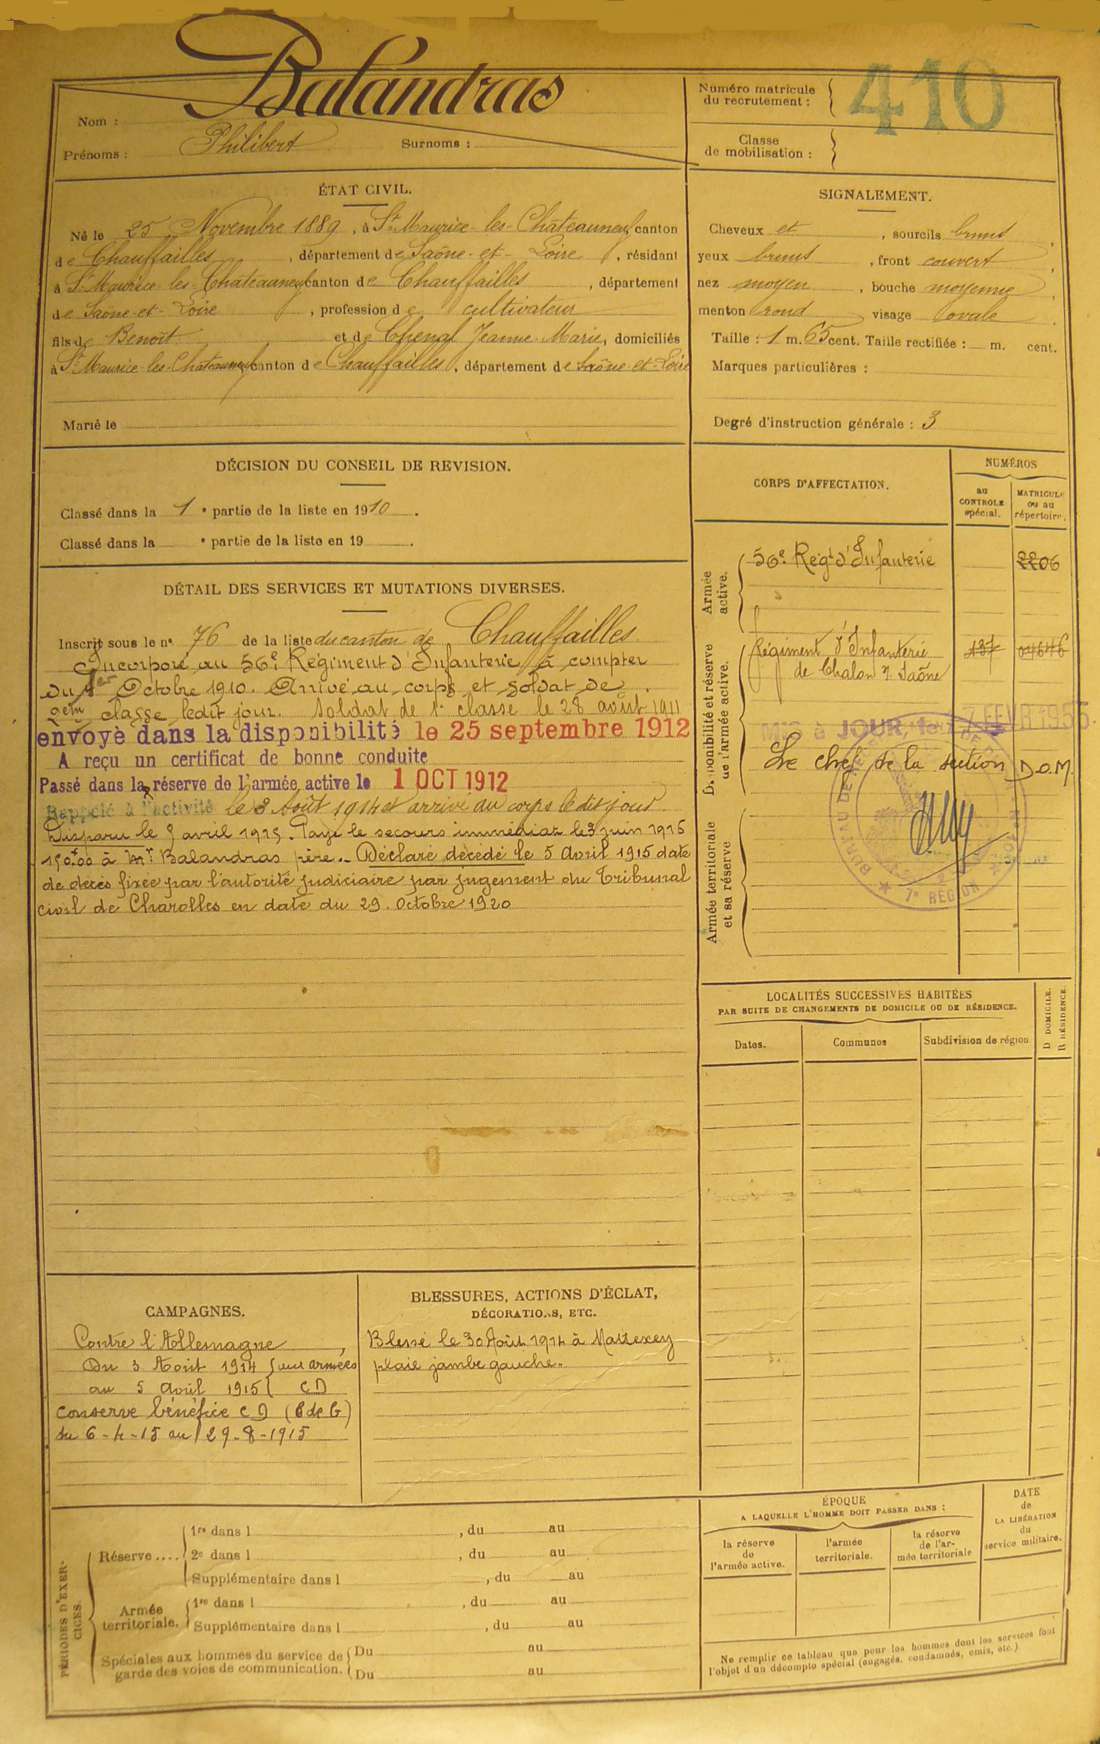 Nom : Balandras
Prénoms : Philibert Surnoms :
Numéro matricule
du recrutement : 410
Classe
de mobilisation :
ÉTAT CIVIL.
Né le 25 Novembre 1889, à St Maurice-les-Châteauneuf canton
de Chauffailles, département de Saône-et-Loire, résidant
à St Maurice-les-Châteauneuf canton de Chauffailles, département
de Saône-et-Loire, profession de cultivateur
fils de Benoît et de Chenal Jeanne-Marie, domiciliés
à St Maurice-les-Châteauneuf canton de Chauffailles, département de Saône-et-Loire
Marié le
SIGNALEMENT.
Cheveux et, sourcils bruns
yeux bruns, front couvert
nez moyen, bouche moyenne
menton rond visage ovale
Taille : 1 m. 65 cent. Taille rectifiée : m. cent.
Marques particulières :
Degré d'instruction générale : 3
DÉCISION DU CONSEIL DE REVISION.
Classé dans la 1e partie de la liste en 1910.
Classé dans la e partie de la liste en 19 .
DÉTAIL DES SERVICES ET MUTATIONS DIVERSES.
Inscrit sous le n° 76 de la liste du canton de Chauffailles
Incorporé au 56e Régiment d'Infanterie à compter
du 1er Octobre 1910. Arrivé au corps et soldat de
2eme classe ledit jour. Soldat de 1e classe le 28 août 1911
envoyé dans la disponibilité le 25 septembre 1912
A reçu un certificat de bonne conduite
Passé dans la réserve de l'armée active le 1 OCT 1912
Rappelé à l'activité le 3 Août 1914 et arrivé au corps ledit jour.
Disparu le 5 avril 1915. Payé le secours immédiat le 3 juin 1916
150f00 à Mr Balandras père. Déclaré décédé le 5 Avril 1915 date
de décès fixée par l'autorité judiciaire par jugement du Tribunal
civil de Charolles en date du 29 Octobre 1920
CORPS D'AFFECTATION.
NUMÉROS
au
CONTROLE
spécial.
MATRICULE
ou au
répertoire.
Armée
active.
56e Régt d'Infanterie 2206
Disponibilité et réserve
de l'armée active.
Régiment d'Infanterie 137 04646
de Chalon s/ Saône
MIS à JOUR, le 7 FEVR 1955
Le chef de la section D.O.M.
BUREAU DE
7e RÉGION
Armée territoriale
et sa réserve
LOCALITÉS SUCCESSIVES HABITÉES
PAR SUITE DE CHANGEMENTS DE DOMICILE OU DE RÉSIDENCE.
Dates. Communes Subdivision de région
D DOMICILE.
R RÉSIDENCE.
CAMPAGNES.
Contre l'Allemagne
Du 3 Août 1914 aux armées
au 5 Avril 1915 CD
conserve bénéfice CD (C de G)
du 6-4-15 au 29-8-1915
BLESSURES, ACTIONS D'ÉCLAT,
DÉCORATIONS, ETC.
Blessé le 30 Août 1914 à Mattexey
plaie jambe gauche.
PÉRIODES D'EXERCICES.
Réserve ....
1re dans l , du au
2e dans l , du au
Supplémentaire dans l , du au
Armée
territoriale.
1re dans l , du au
Supplémentaire dans l , du au
Spéciales aux hommes du service de
garde des voies de communication.
Du au
Du au
ÉPOQUE
A LAQUELLE L'HOMME DOIT PASSER DANS :
la réserve
de
l'armée active.
l'armée
territoriale.
la réserve
de l'ar-
mée territoriale
DATE
de
LA LIBÉRATION
du
service militaire.
Ne remplir ce tableau que pour les hommes dont les services font
l'objet d'un décompte spécial (engagés, condamnés, omis, etc.).